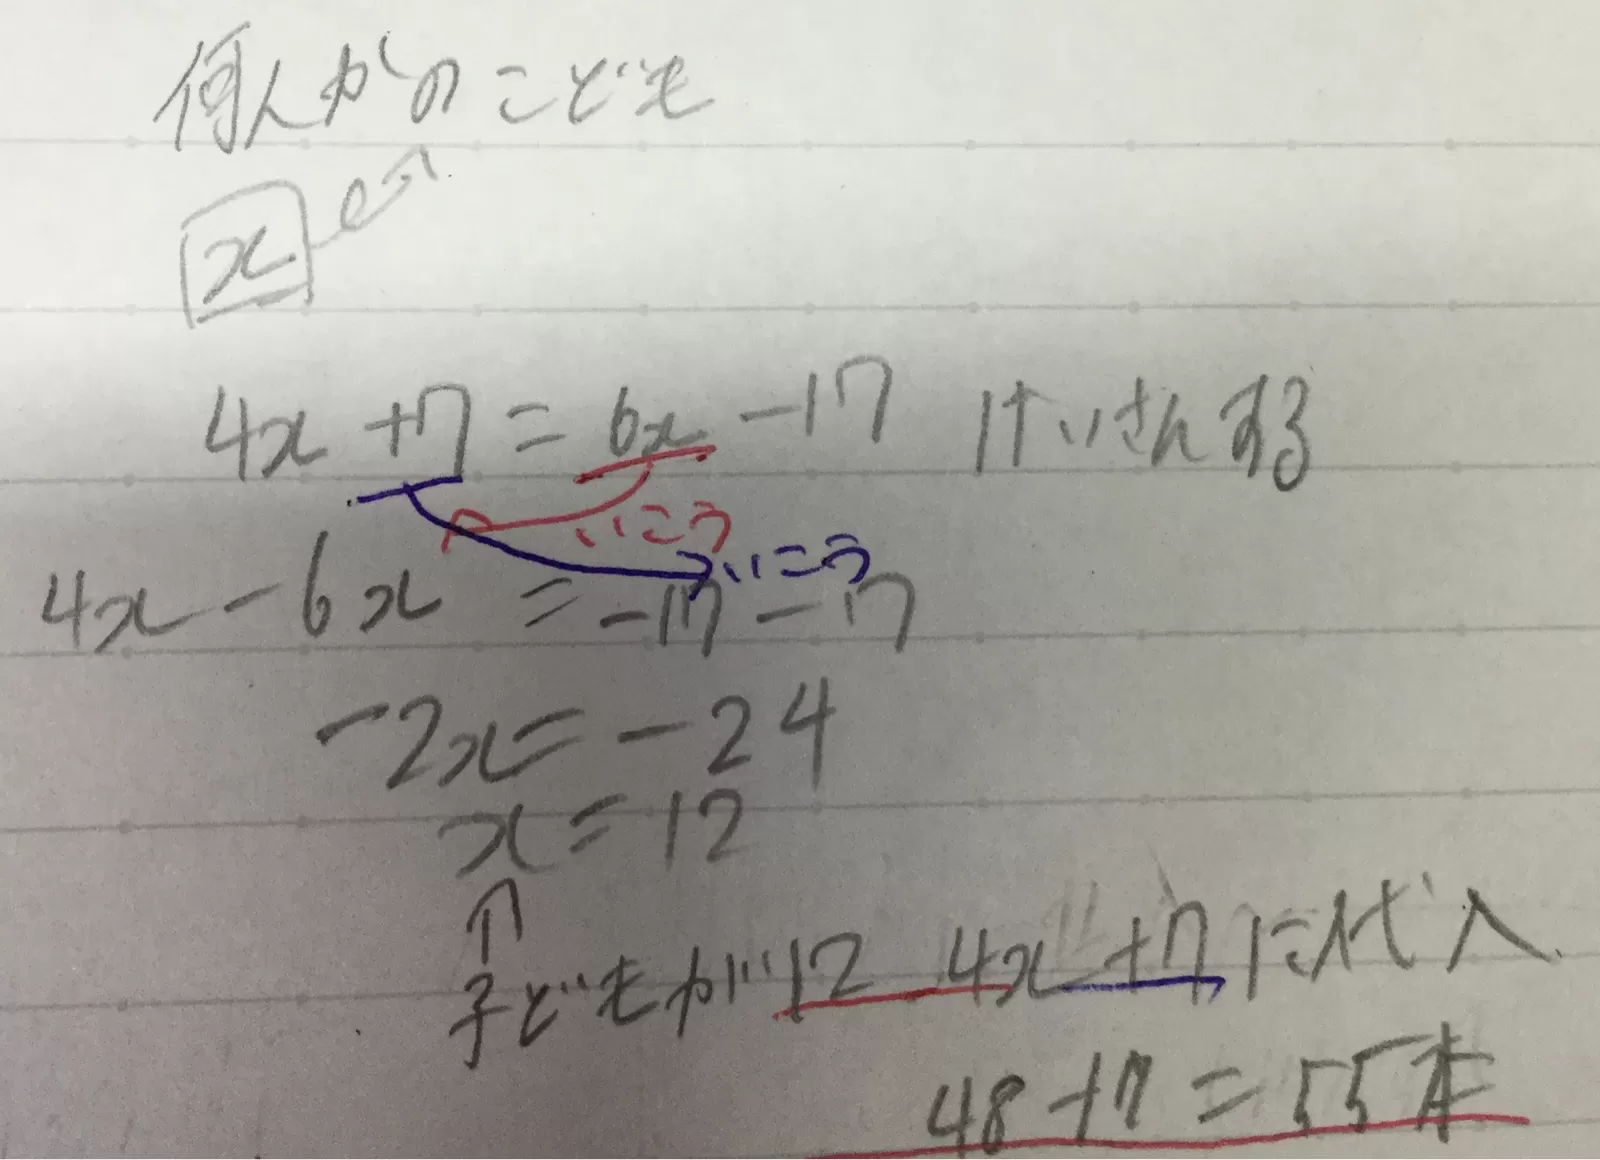 何人かのこども
x
4x+7=6x-17 けいさんする
いこう
いこう
4x-6x=-17-7
-2x=-24
x=12
↑
子どもが12 4x+7に代入
48+7=55本